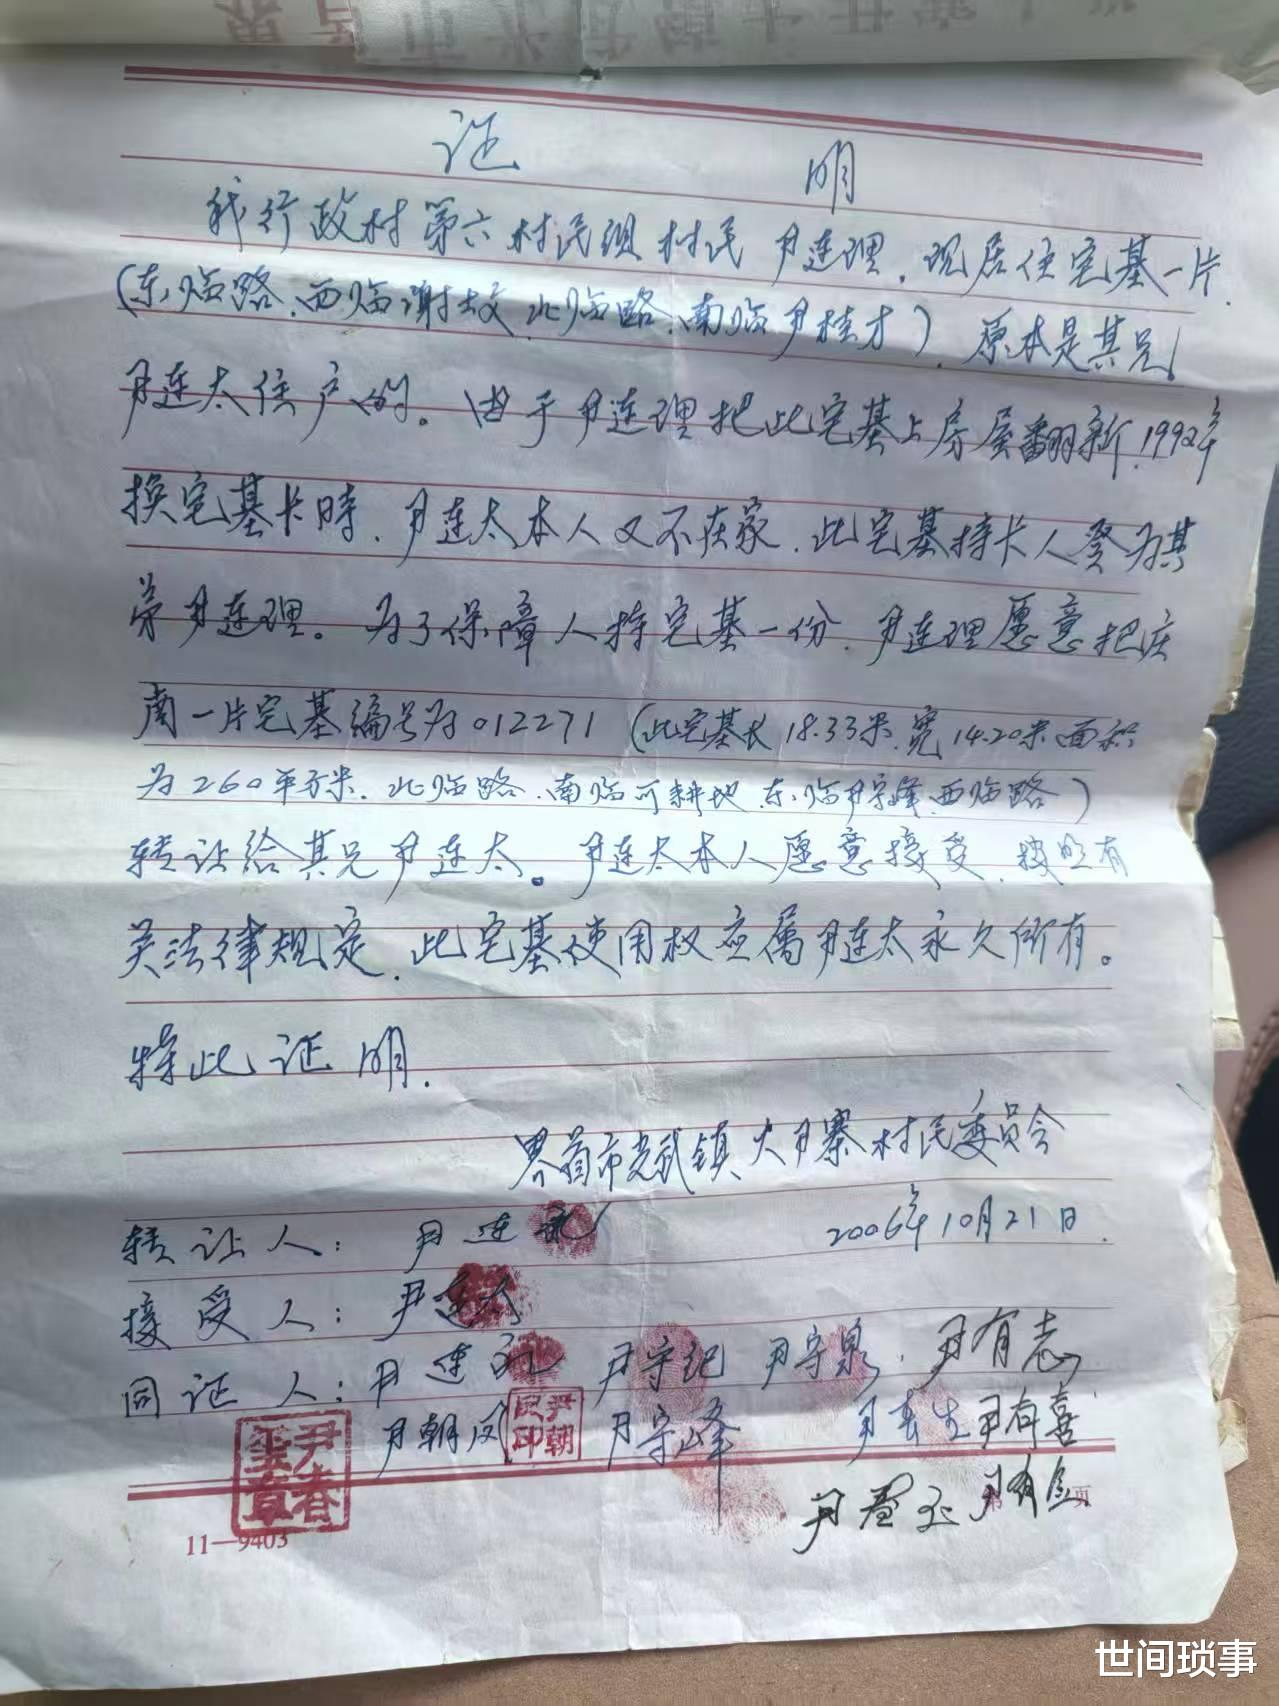 证 明
我行政村第六村民组村民尹连理，现居住宅基一片，
（东临路、西临谢 北临路、南临尹桂才），原本是其兄
尹连太住户的。由于尹连理把此宅基上房屋翻新，1992年
换宅基卡时，尹连太本人又不在家，此宅基持卡人登为其
弟尹连理。为了保障人持宅基一份，尹连理愿意把庄
南一片宅基编号为012271（此宅基长18.33米，宽14.20米面积
为260平方米，北临路、南临可耕地、东临尹守峰、西临路）
转让给其兄尹连太。尹连太本人愿意接受，按照有
关法律规定，此宅基使用权应属尹连太永久所有。
特此证明．
界首市光武镇大尹寨村民委员会
2006年10月21日．
转让人：尹连
接受人：尹连太
同证人：尹连 尹守纪 尹守泉 尹有志
尹朝 尹守峰 尹春生 尹有喜
尹春玉 尹有
尹春玺章
11—9403
世间琐事